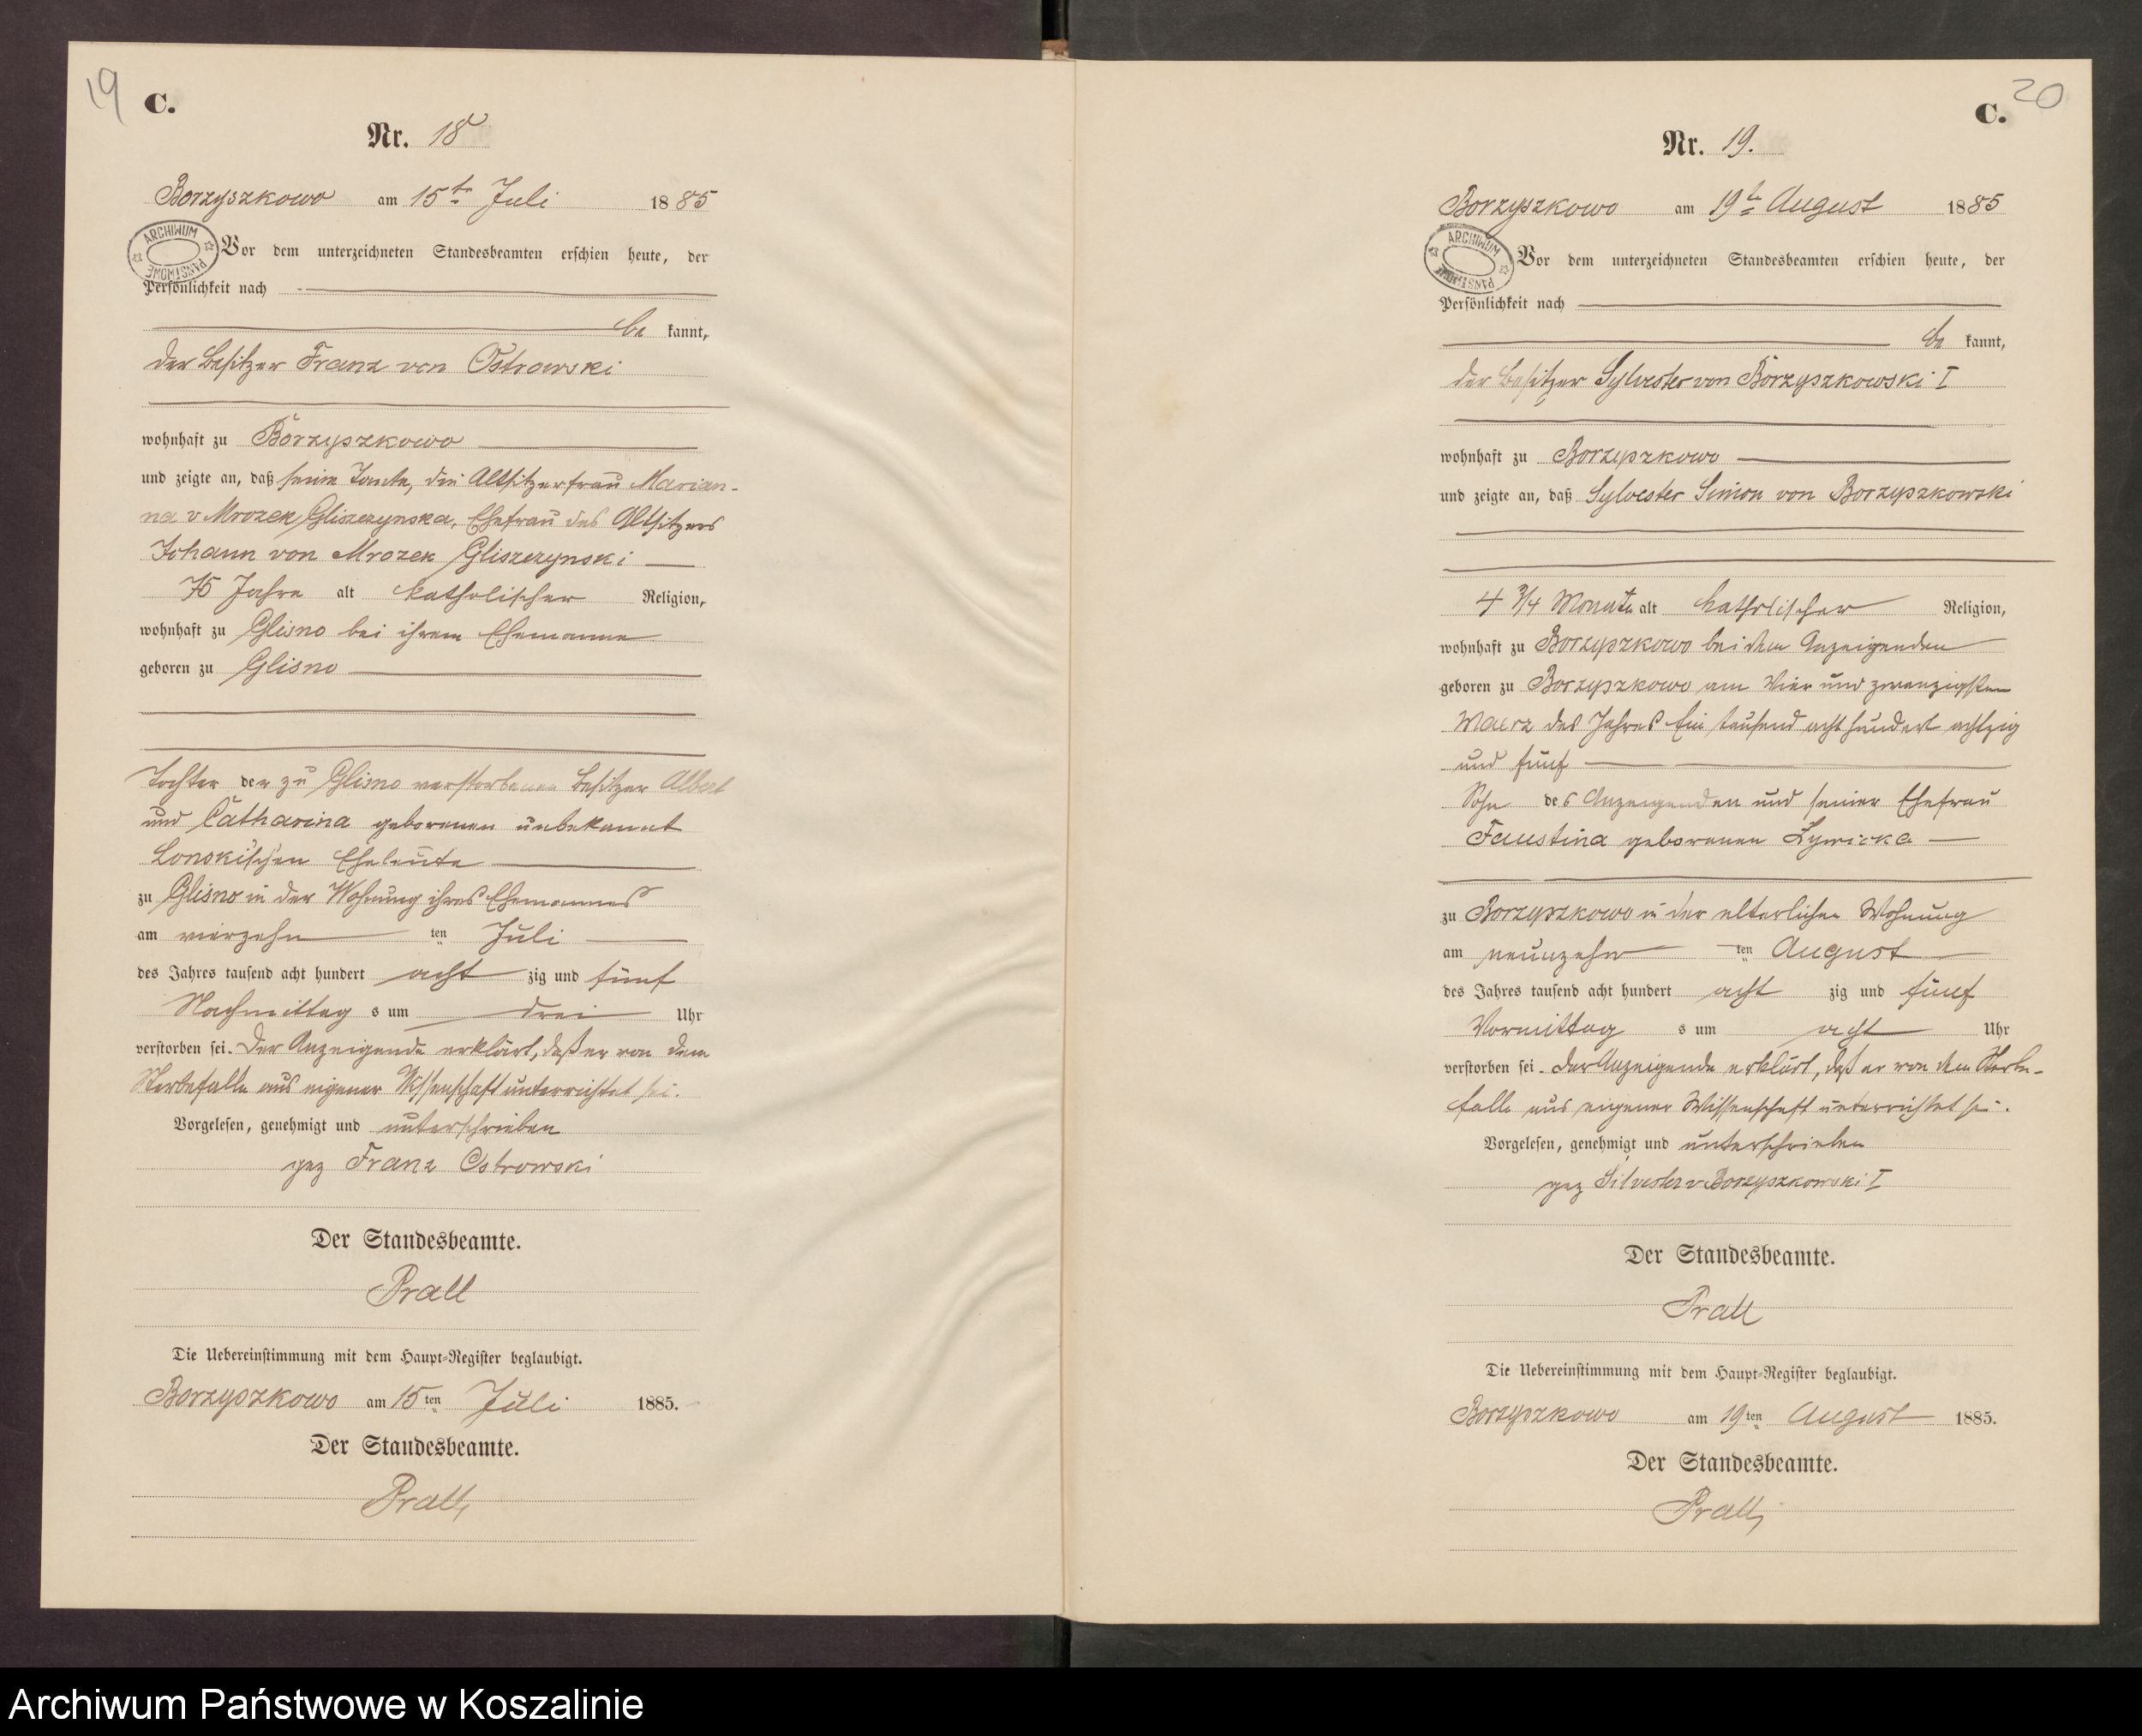 19
C.
Nr. 18
Borzyszkowo am 15ten Juli 1885
ARCHIWUM PAŃSTWOWE
Vor dem unterzeichneten Standesbeamten erschien heute, der
Persönlichkeit nach
be kannt,
der Besitzer Franz von Ostrowski
wohnhaft zu Borzyszkowo
und zeigte an, daß seine Tante, die Altsitzerfrau Marian-
na v Mrozek Gliszczynska, Ehefrau des Altsitzers
Johann von Mrozek Gliszczynski
75 Jahre alt katholischer Religion,
wohnhaft zu Glisno bei ihrem Ehemanne
geboren zu Glisno
Tochter der zu Glisno verstorbenen Besitzer Albert
und Catharina geborenen unbekannt
Lonski'schen Eheleute
zu Glisno in der Wohnung ihres Ehemannes
am vierzehn ten Juli
des Jahres tausend acht hundert acht zig und fünf
Nachmittag s um drei Uhr
verstorben sei. Der Anzeigende erklärt, daß er von dem
Sterbefalle aus eigener Wissenschaft unterrichtet sei.
Vorgelesen, genehmigt und unterschrieben
gez Franz Ostrowski
Der Standesbeamte.
Prall
Die Uebereinstimmung mit dem Haupt-Register beglaubigt.
Borzyszkowo am 15ten Juli 1885.
Der Standesbeamte.
Prall
20
C.
Nr. 19.
Borzyszkowo am 19ten August 1885
ARCHIWUM PAŃSTWOWE
Vor dem unterzeichneten Standesbeamten erschien heute, der
Persönlichkeit nach
be kannt,
der Besitzer Sylvester von Borzyszkowski I
wohnhaft zu Borzyszkowo
und zeigte an, daß Sylvester Simon von Borzyszkowski
4 3/4 Monate alt katholischer Religion,
wohnhaft zu Borzyszkowo bei dem Anzeigenden
geboren zu Borzyszkowo am Vier und zwanzigsten
Maerz des Jahres Ein tausend acht hundert achtzig
und fünf
Sohn des Anzeigenden und seiner Ehefrau
Faustina geborenen Zywicka
zu Borzyszkowo in der elterlichen Wohnung
am neunzehn ten August
des Jahres tausend acht hundert acht zig und fünf
Vormittag s um acht Uhr
verstorben sei. Der Anzeigende erklärt, daß er von dem Sterbe-
falle aus eigener Wissenschaft unterrichtet sei.
Vorgelesen, genehmigt und unterschrieben
gez Silvester v Borzyszkowski I
Der Standesbeamte.
Prall
Die Uebereinstimmung mit dem Haupt-Register beglaubigt.
Borzyszkowo am 19ten August 1885.
Der Standesbeamte.
Prall
Archiwum Państwowe w Koszalinie